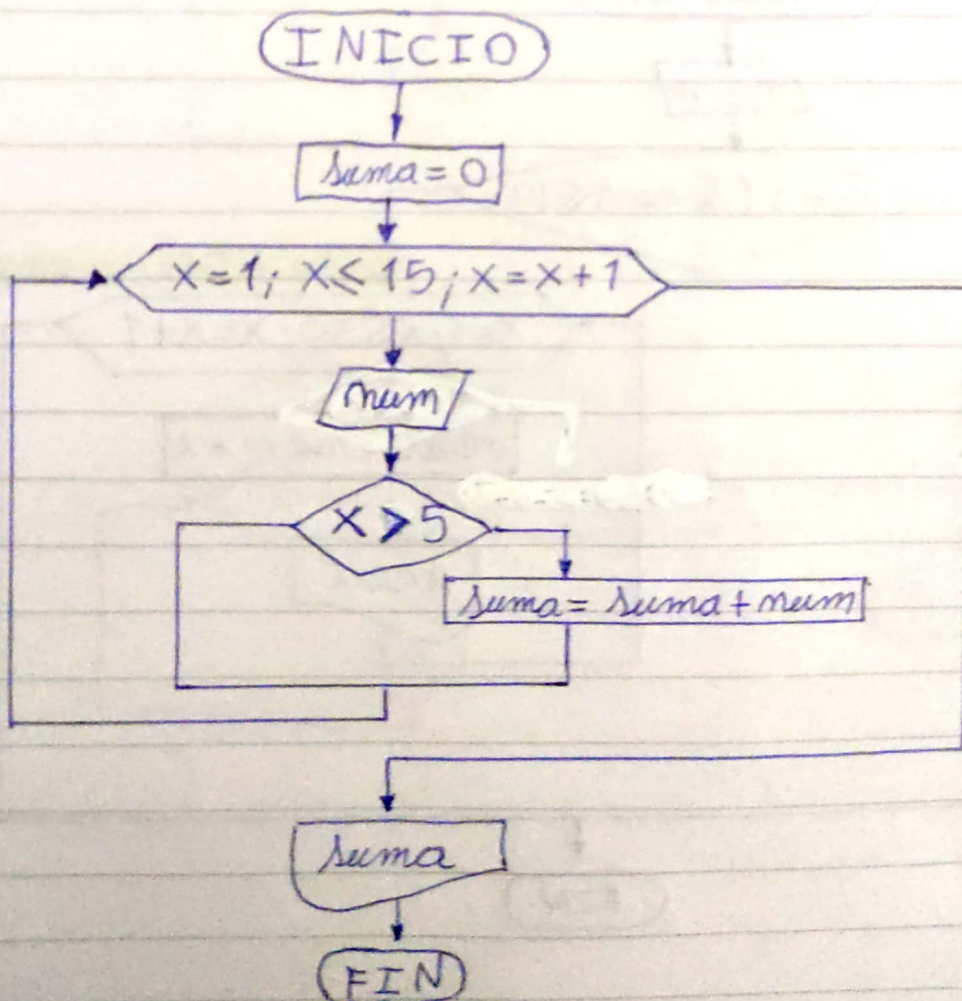 INICIO
suma = 0
X=1; X≤15; X=X+1
num
X > 5
suma = suma + num
suma
FIN